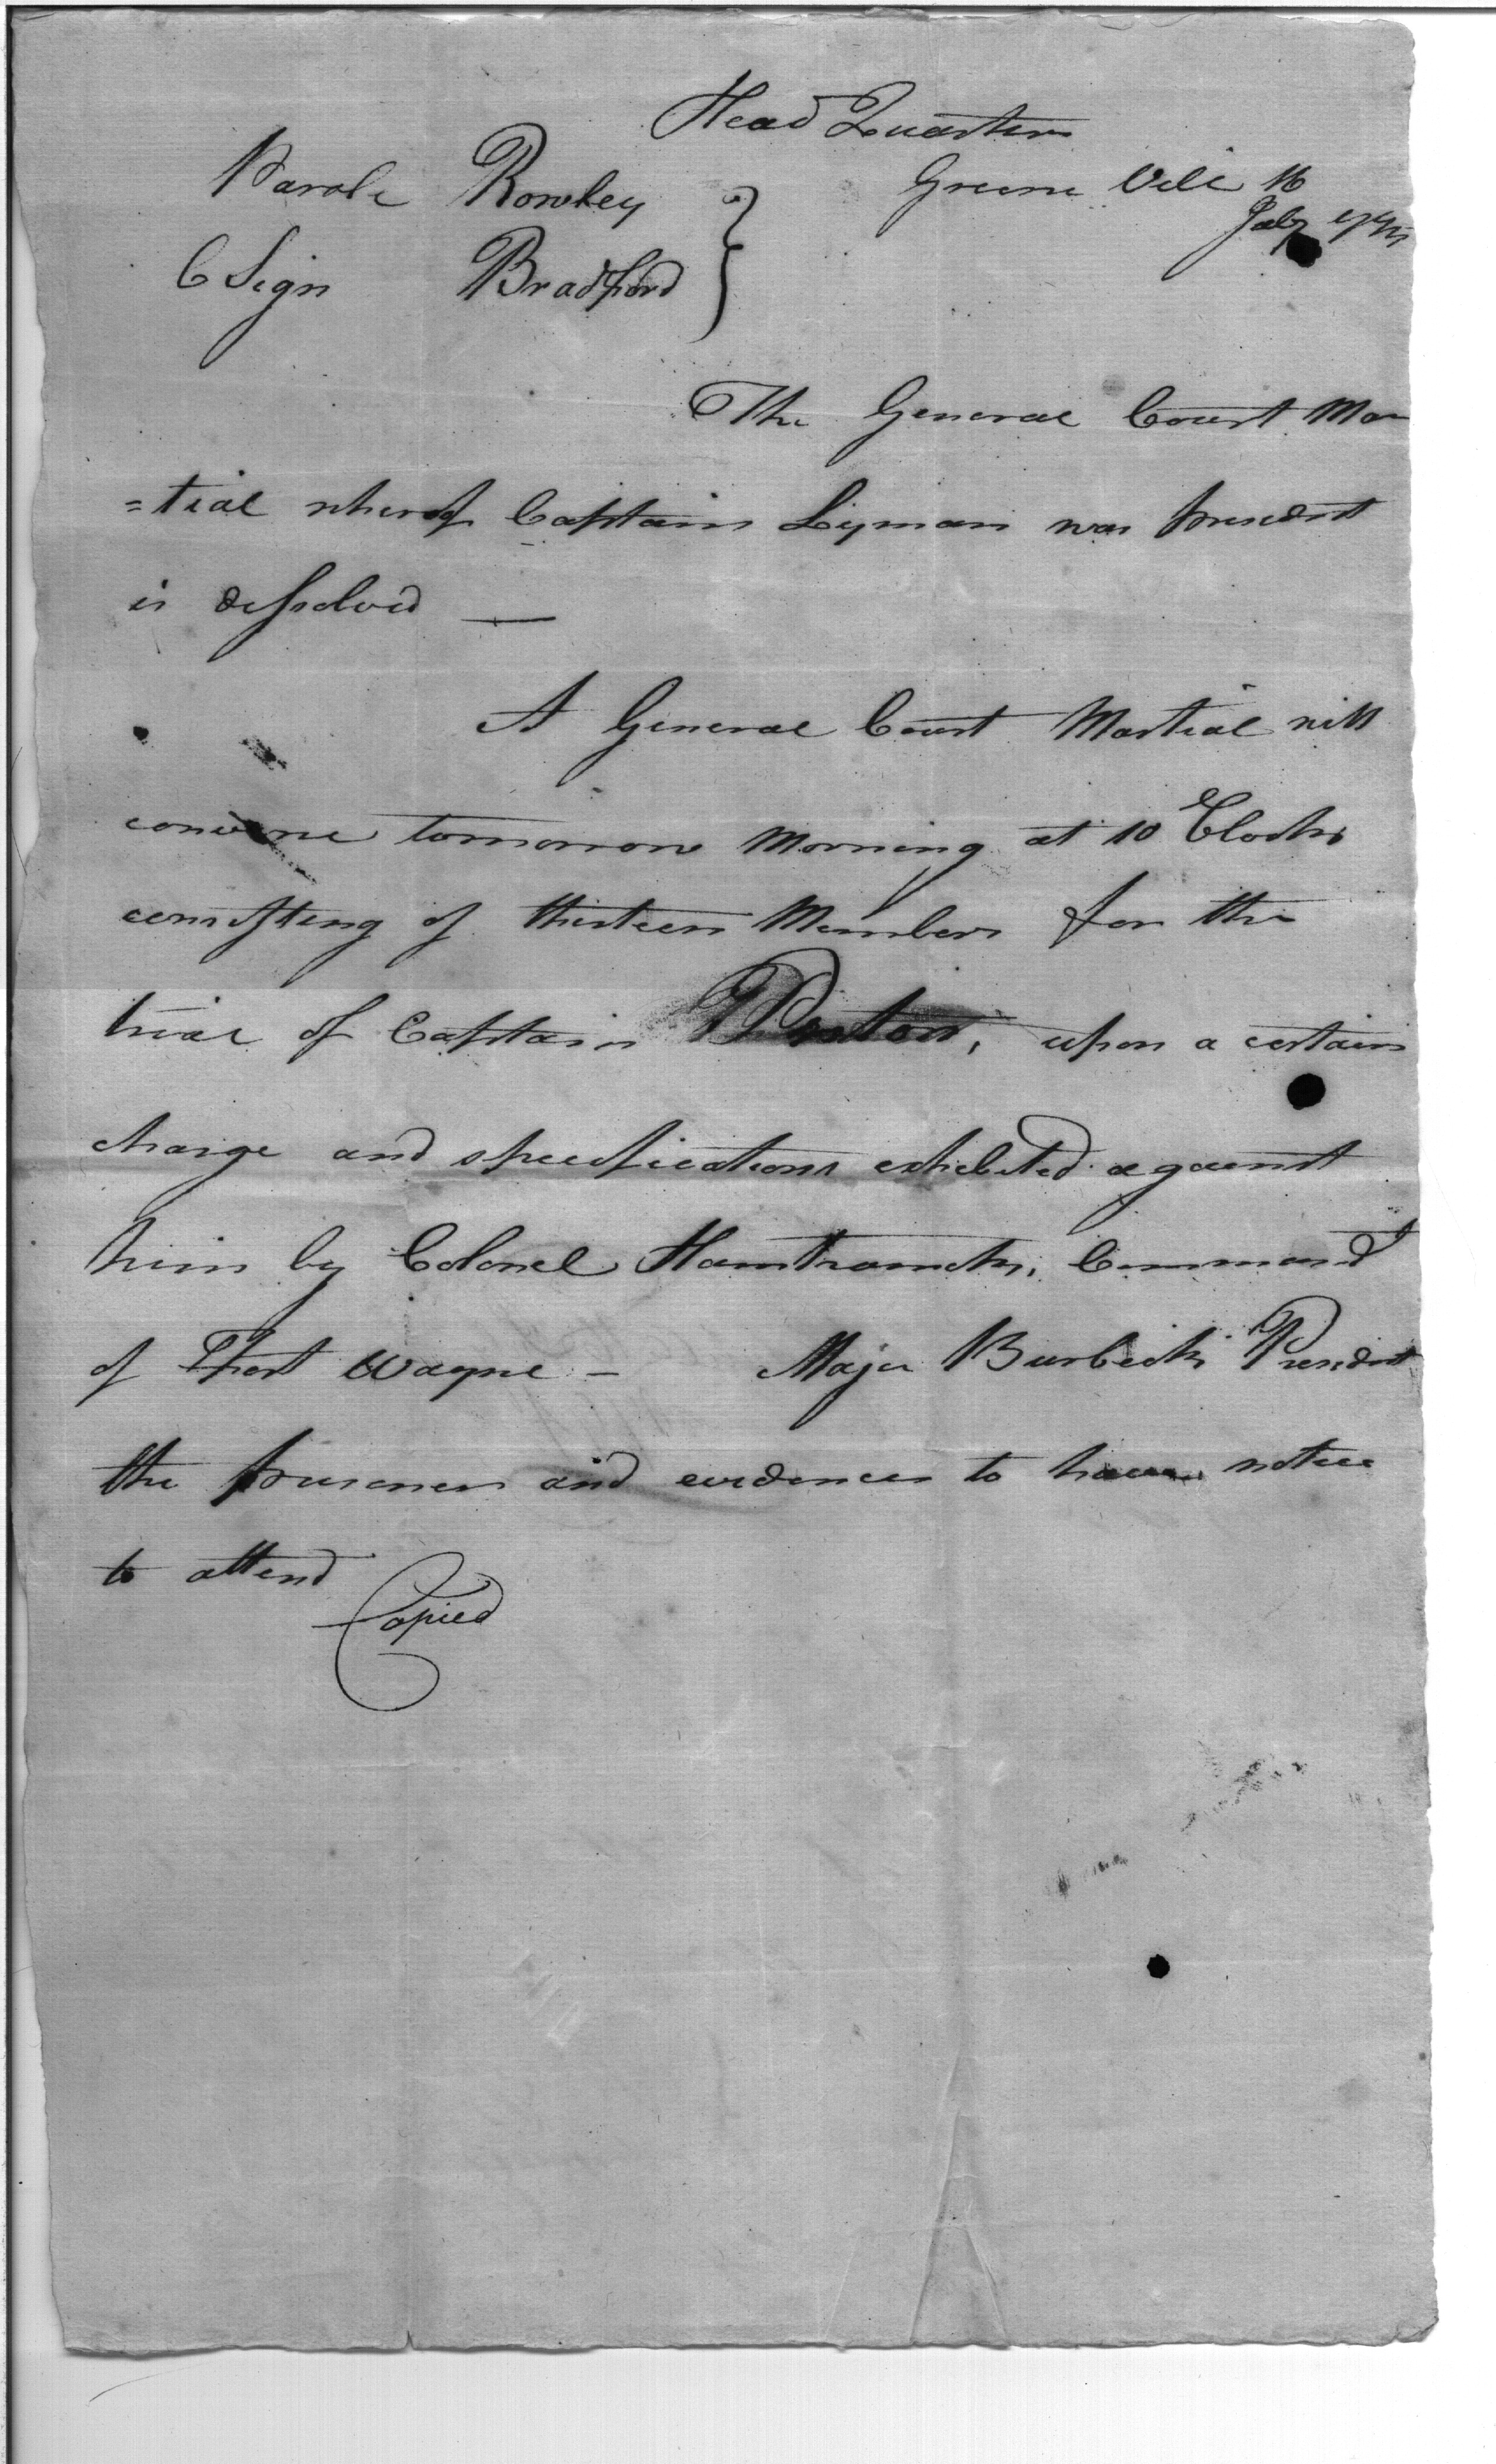 Head Quarters
Parole Rowley } Greene Ville 16
July 1795
C Sign Bradford
The General Court Mar
=tial whereof Captain Lyman was president
is dissolved —
A General Court Martial will
convene tomorrow Morning at 10 Clock
consisting of thirteen Members for the
trial of Captain Preston, upon a certain
charge and specifications exhibited against
him by Colonel Hamtramck, Command
of Fort Wayne — Major Burbeck President
the prisoner and evidences to have notice
to attend
Copied